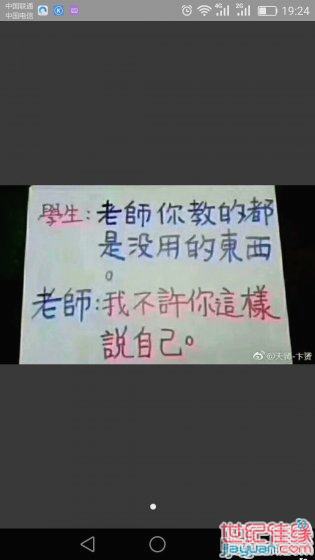 中国联通
中国电信
4G
2G
19:24
學生:老師你教的都
是没用的東西
。
老師:我不許你這樣
說自己。
世纪佳缘
jiayuan.com